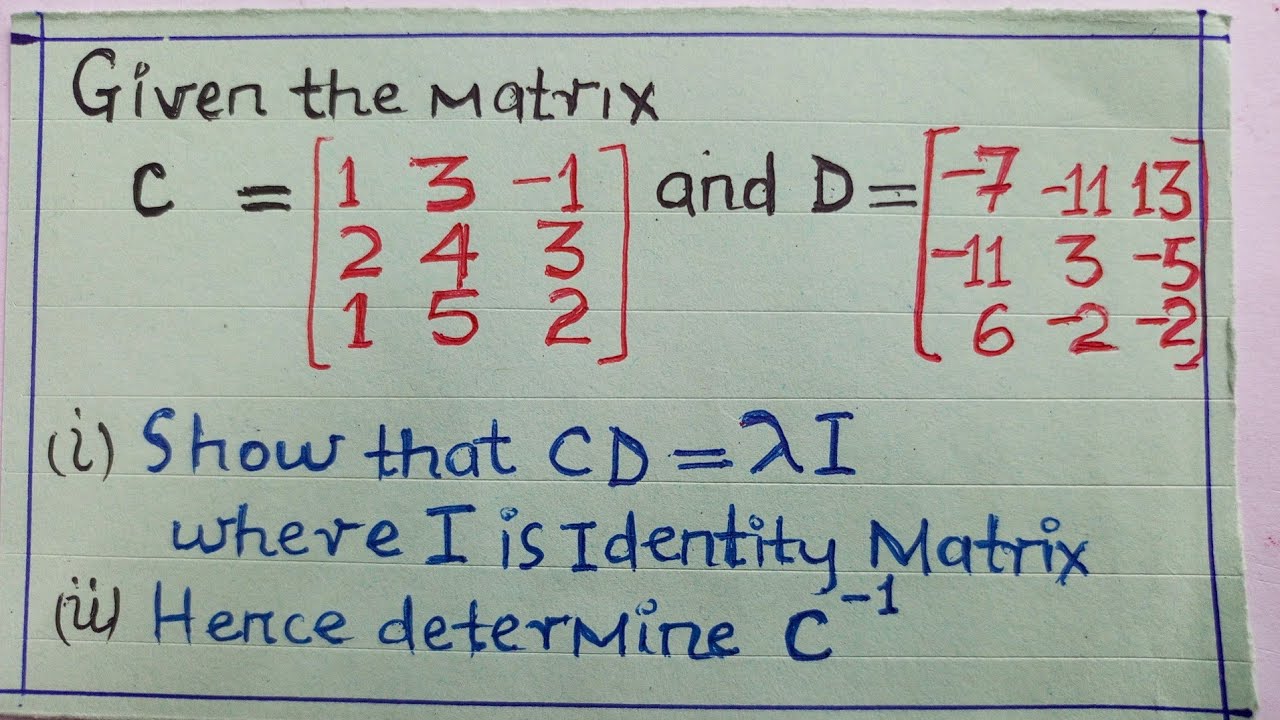 Given the Matrix
C = [1 3 -1 and D = [-7 -11 13
2 4 3 -11 3 -5
1 5 2] 6 -2 -2]
(i) Show that CD = λI
where I is Identity Matrix
(ii) Hence determine C⁻¹